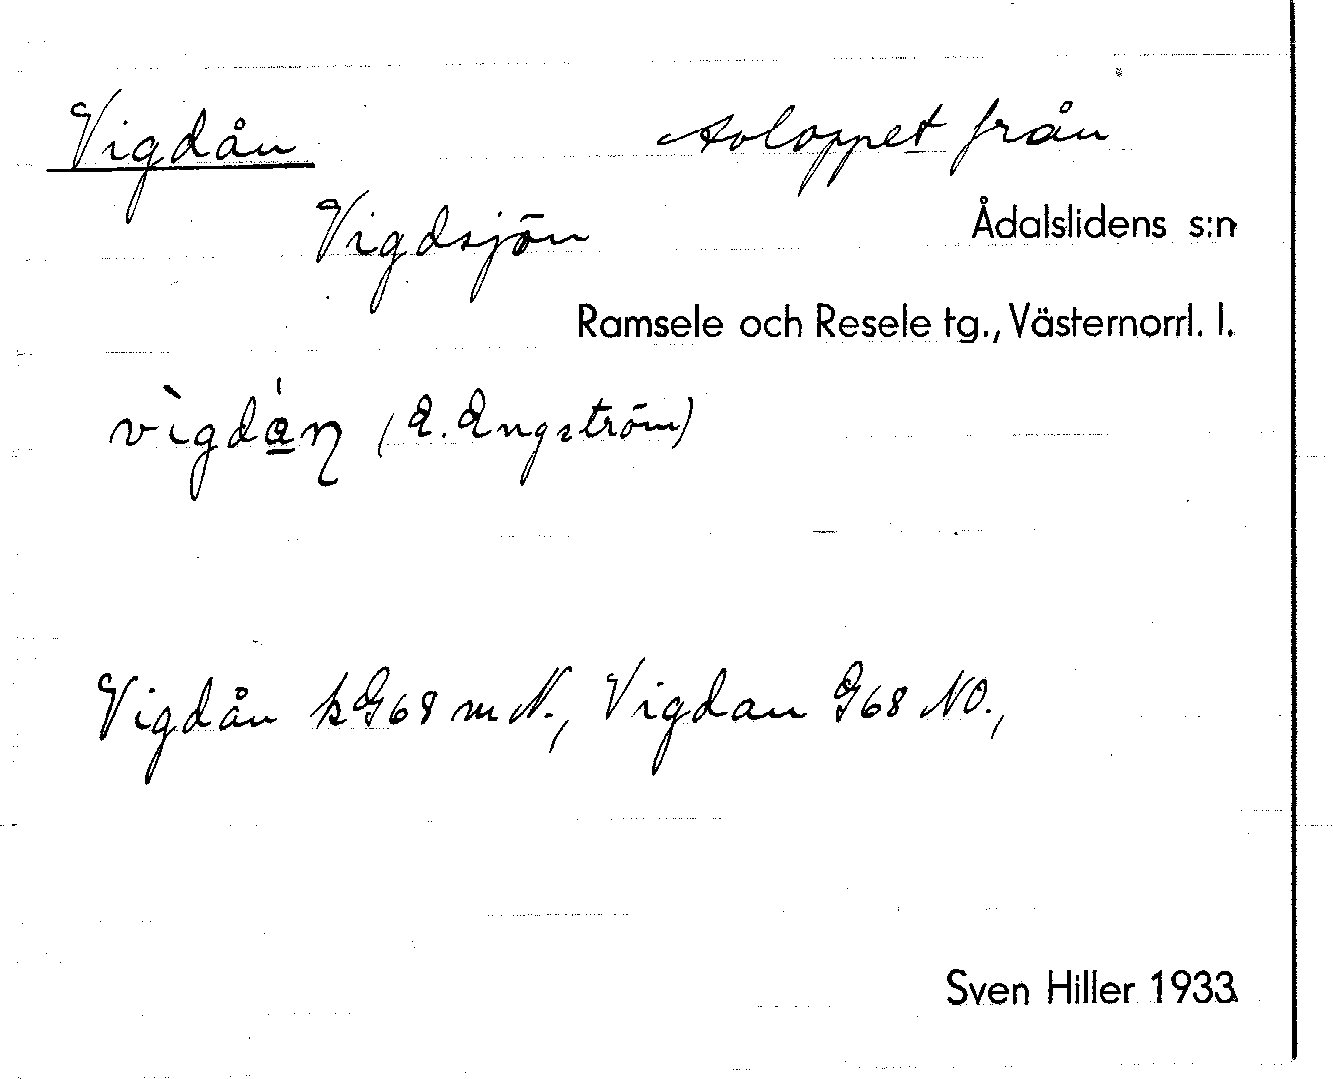 Vigdån Avloppet från
Vigdsjön Ådalslidens s:n
Ramsele och Resele tg., Västernorrl. l.
(E. Engström)
Vigdån kG68 m N., Vigdan G68 NO.,
Sven Hiller 1933